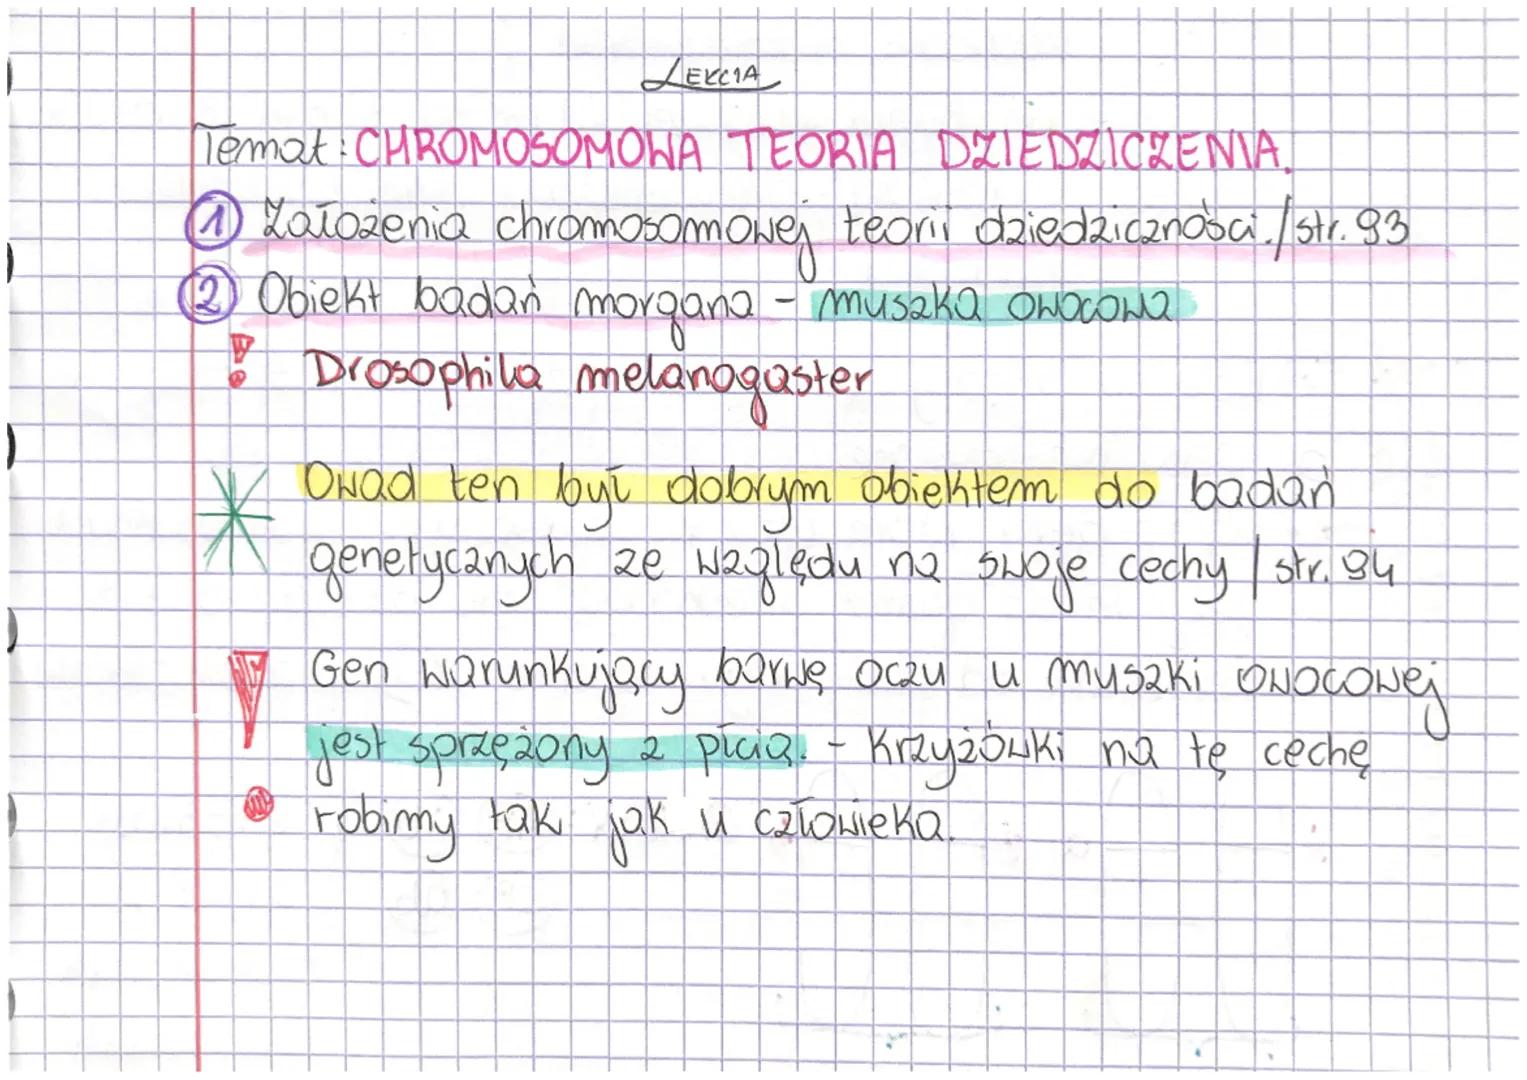 LEKCJA
Temat: CHROMOSOMOWA TEORIA DZIEDZICZENIA.
1 Założenia chromosomowej teorii dziedziczności. / str. 93
2 Obiekt badań morgana - muszka owocowa
! Drosophila melanogaster
Owad ten był dobrym obiektem do badań
genetycznych ze względu na swoje cechy / str. 94
! Gen warunkujący barwę oczu u muszki owocowej
jest sprzężony z płcią. - Krzyżówki na tę cechę
robimy tak jak u człowieka.